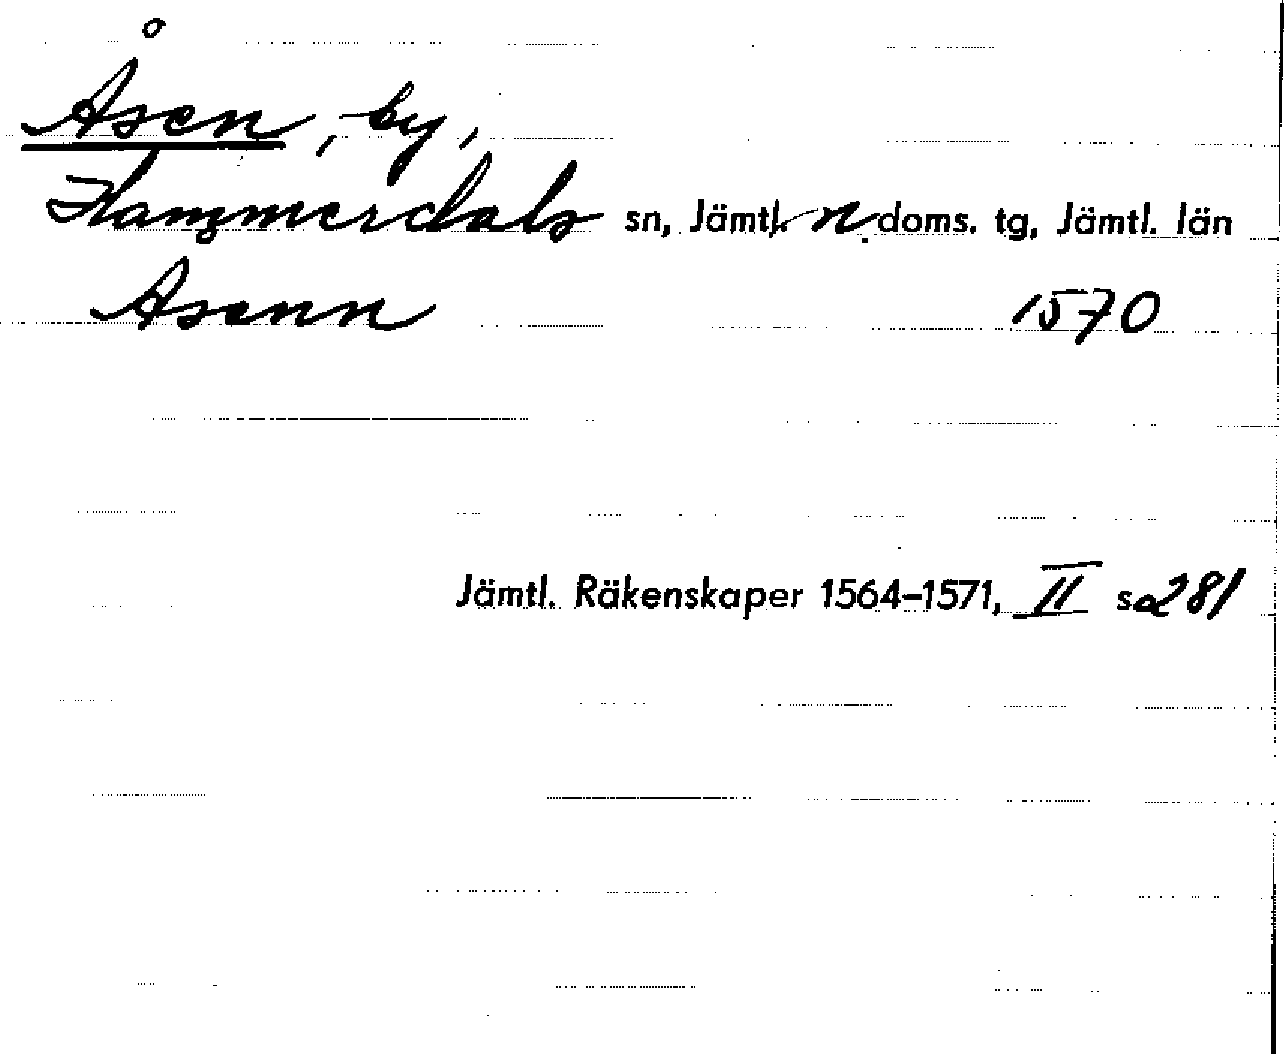 Åsen, by,
Hammerdals sn, Jämtl. n. doms. tg, Jämtl. län
Asenn 1570
Jämtl. Räkenskaper 1564–1571, II s. 281